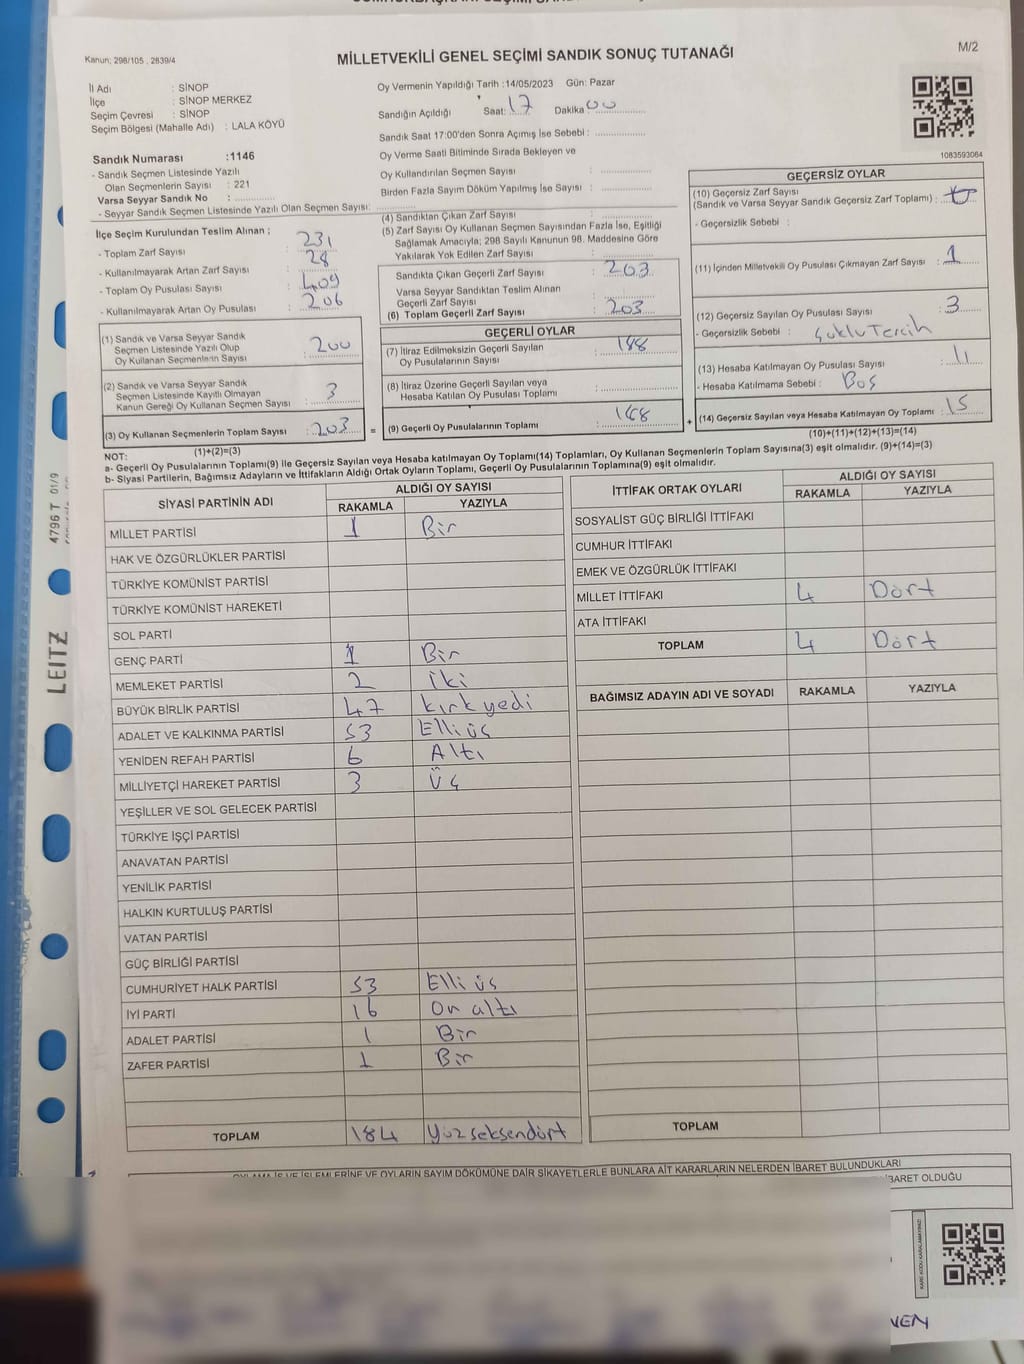 Kanun; 298/105 , 2839/4
MİLLETVEKİLİ GENEL SEÇİMİ SANDIK SONUÇ TUTANAĞI
M/2
İl Adı : SİNOP
İlçe : SİNOP MERKEZ
Seçim Çevresi : SİNOP
Seçim Bölgesi (Mahalle Adı) : LALA KÖYÜ
Sandık Numarası :1146
- Sandık Seçmen Listesinde Yazılı
Olan Seçmenlerin Sayısı : 221
Varsa Seyyar Sandık No :
- Seyyar Sandık Seçmen Listesinde Yazılı Olan Seçmen Sayısı:
Oy Vermenin Yapıldığı Tarih :14/05/2023 Gün: Pazar
Sandığın Açıldığı Saat: 17 Dakika 00
Sandık Saat 17:00'den Sonra Açımış İse Sebebi :
Oy Verme Saati Bitiminde Sırada Bekleyen ve
Oy Kullandırılan Seçmen Sayısı :
Birden Fazla Sayım Döküm Yapılmış İse Sayısı :
1083593064
İlçe Seçim Kurulundan Teslim Alınan ;
- Toplam Zarf Sayısı : 231
- Kullanılmayarak Artan Zarf Sayısı : 28
- Toplam Oy Pusulası Sayısı : 409
- Kullanılmayarak Artan Oy Pusulası : 206
(1) Sandık ve Varsa Seyyar Sandık
Seçmen Listesinde Yazılı Olup
Oy Kullanan Seçmenlerin Sayısı : 200
(2) Sandık ve Varsa Seyyar Sandık
Seçmen Listesinde Kayıtlı Olmayan
Kanun Gereği Oy Kullanan Seçmen Sayısı : 3
(3) Oy Kullanan Seçmenlerin Toplam Sayısı : 203
(1)+(2)=(3)
(4) Sandıktan Çıkan Zarf Sayısı :
(5) Zarf Sayısı Oy Kullanan Seçmen Sayısından Fazla İse, Eşitliği
Sağlamak Amacıyla; 298 Sayılı Kanunun 98. Maddesine Göre
Yakılarak Yok Edilen Zarf Sayısı :
Sandıkta Çıkan Geçerli Zarf Sayısı : 203
Varsa Seyyar Sandıktan Teslim Alınan
Geçerli Zarf Sayısı :
(6) Toplam Geçerli Zarf Sayısı : 203
GEÇERLİ OYLAR
(7) İtiraz Edilmeksizin Geçerli Sayılan
Oy Pusulalarının Sayısı : 188
(8) İtiraz Üzerine Geçerli Sayılan veya
Hesaba Katılan Oy Pusulası Toplamı :
= (9) Geçerli Oy Pusulalarının Toplamı : 188 +
GEÇERSİZ OYLAR
(10) Geçersiz Zarf Sayısı
(Sandık ve Varsa Seyyar Sandık Geçersiz Zarf Toplamı) :
- Geçersizlik Sebebi :
(11) İçinden Milletvekili Oy Pusulası Çıkmayan Zarf Sayısı : 1
(12) Geçersiz Sayılan Oy Pusulası Sayısı : 3
- Geçersizlik Sebebi : Çoklu Tercih
(13) Hesaba Katılmayan Oy Pusulası Sayısı : 11
- Hesaba Katılmama Sebebi : Boş
(14) Geçersiz Sayılan veya Hesaba Katılmayan Oy Toplamı : 15
(10)+(11)+(12)+(13)=(14)
NOT:
a- Geçerli Oy Pusulalarının Toplamı(9) ile Geçersiz Sayılan veya Hesaba katılmayan Oy Toplamı(14) Toplamları, Oy Kullanan Seçmenlerin Toplam Sayısına(3) eşit olmalıdır. (9)+(14)=(3)
b- Siyasi Partilerin, Bağımsız Adayların ve İttifakların Aldığı Ortak Oyların Toplamı, Geçerli Oy Pusulalarının Toplamına(9) eşit olmalıdır.
SİYASİ PARTİNİN ADI ALDIĞI OY SAYISI
RAKAMLA YAZIYLA
MİLLET PARTİSİ 1 Bir
HAK VE ÖZGÜRLÜKLER PARTİSİ
TÜRKİYE KOMÜNİST PARTİSİ
TÜRKİYE KOMÜNİST HAREKETİ
SOL PARTİ
GENÇ PARTİ 1 Bir
MEMLEKET PARTİSİ 2 iki
BÜYÜK BİRLİK PARTİSİ 47 kırk yedi
ADALET VE KALKINMA PARTİSİ 53 Elli üç
YENİDEN REFAH PARTİSİ 6 Altı
MİLLİYETÇİ HAREKET PARTİSİ 3 Üç
YEŞİLLER VE SOL GELECEK PARTİSİ
TÜRKİYE İŞÇİ PARTİSİ
ANAVATAN PARTİSİ
YENİLİK PARTİSİ
HALKIN KURTULUŞ PARTİSİ
VATAN PARTİSİ
GÜÇ BİRLİĞİ PARTİSİ
CUMHURİYET HALK PARTİSİ 53 Elli üç
İYİ PARTİ 16 On altı
ADALET PARTİSİ 1 Bir
ZAFER PARTİSİ 1 Bir
TOPLAM 184 Yüz seksendört
İTTİFAK ORTAK OYLARI ALDIĞI OY SAYISI
RAKAMLA YAZIYLA
SOSYALİST GÜÇ BİRLİĞİ İTTİFAKI
CUMHUR İTTİFAKI
EMEK VE ÖZGÜRLÜK İTTİFAKI
MİLLET İTTİFAKI 4 Dört
ATA İTTİFAKI
TOPLAM 4 Dört
BAĞIMSIZ ADAYIN ADI VE SOYADI RAKAMLA YAZIYLA
TOPLAM
LEITZ
4796 T 01/9
KARE KODU KARALAMAYINIZ!